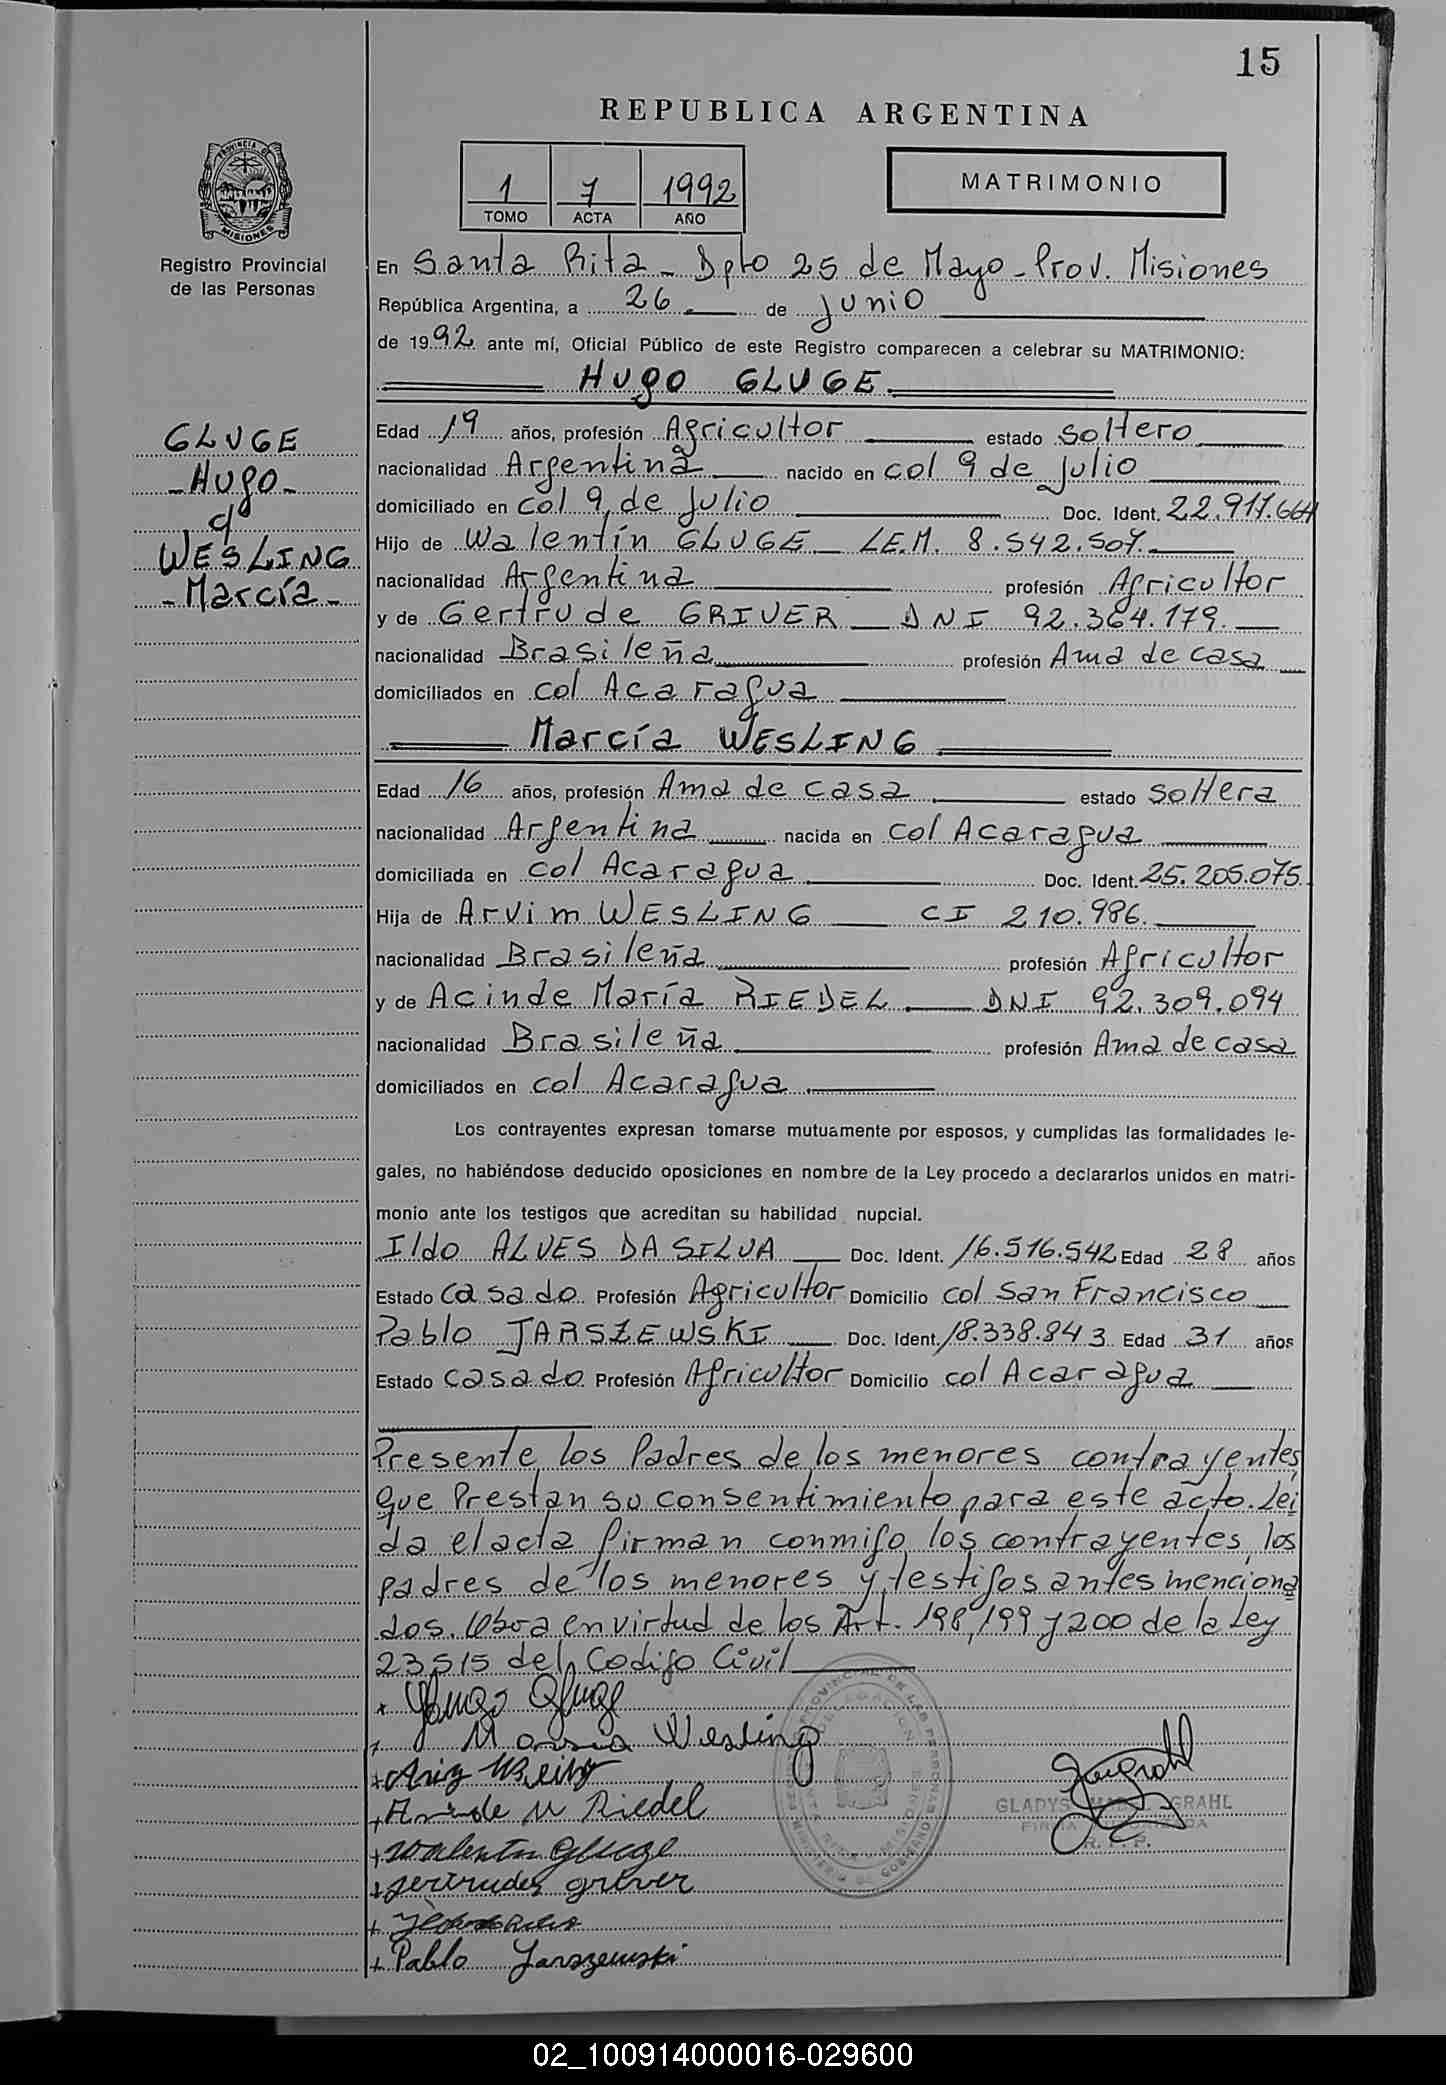 15
REPUBLICA ARGENTINA
1 7 1992
TOMO ACTA AÑO
MATRIMONIO
PROVINCIA DE MISIONES
Registro Provincial
de las Personas
En Santa Rita - Dpto 25 de Mayo - Prov. Misiones
República Argentina, a 26 de junio
de 1992 ante mí, Oficial Público de este Registro comparecen a celebrar su MATRIMONIO:
Hugo GLUGE
GLUGE
- Hugo -
c/
WESLING
- Marcía -
Edad 19 años, profesión Agricultor estado soltero
nacionalidad Argentina nacido en col 9 de julio
domiciliado en col 9 de julio Doc. Ident. 22.917.664
Hijo de Walentín GLUGE - L.E.M. 8.542.507.
nacionalidad Argentina profesión Agricultor
y de Gertrude GRIVER - DNI 92.364.179.
nacionalidad Brasileña profesión Ama de casa
domiciliados en col Acaragua
Marcía WESLING
Edad 16 años, profesión Ama de casa estado soltera
nacionalidad Argentina nacida en col Acaragua
domiciliada en col Acaragua Doc. Ident. 25.205.075.
Hija de Arvim WESLING CI 210.986.
nacionalidad Brasileña profesión Agricultor
y de Acinde María RIEDEL DNI 92.309.094
nacionalidad Brasileña profesión Ama de casa
domiciliados en col Acaragua
Los contrayentes expresan tomarse mutuamente por esposos, y cumplidas las formalidades le-
gales, no habiéndose deducido oposiciones en nombre de la Ley procedo a declararlos unidos en matri-
monio ante los testigos que acreditan su habilidad nupcial.
Ildo ALVES DA SILVA Doc. Ident. 16.516.542 Edad 28 años
Estado casado Profesión Agricultor Domicilio col San Francisco
Pablo JARSZEWSKI Doc. Ident. 18.338.843 Edad 31 años
Estado casado Profesión Agricultor Domicilio col Acaragua
Presente los Padres de los menores contrayentes,
que Prestan su consentimiento para este acto. Lei
da el acta firman conmigo los contrayentes, los
padres de los menores y testigos antes menciona
dos. Obra en virtud de los Art. 198, 199 y 200 de la Ley
23515 del Codigo Civil
x Hugo Gluge
x Marcia Wesling
x
x M Riedel
x Walentin Gluge
x gertrudes griver
x
x Pablo Jarszewski
GLADYS GRAHL
FIRMA AUTORIZADA
R. P. P.
02_100914000016-029600